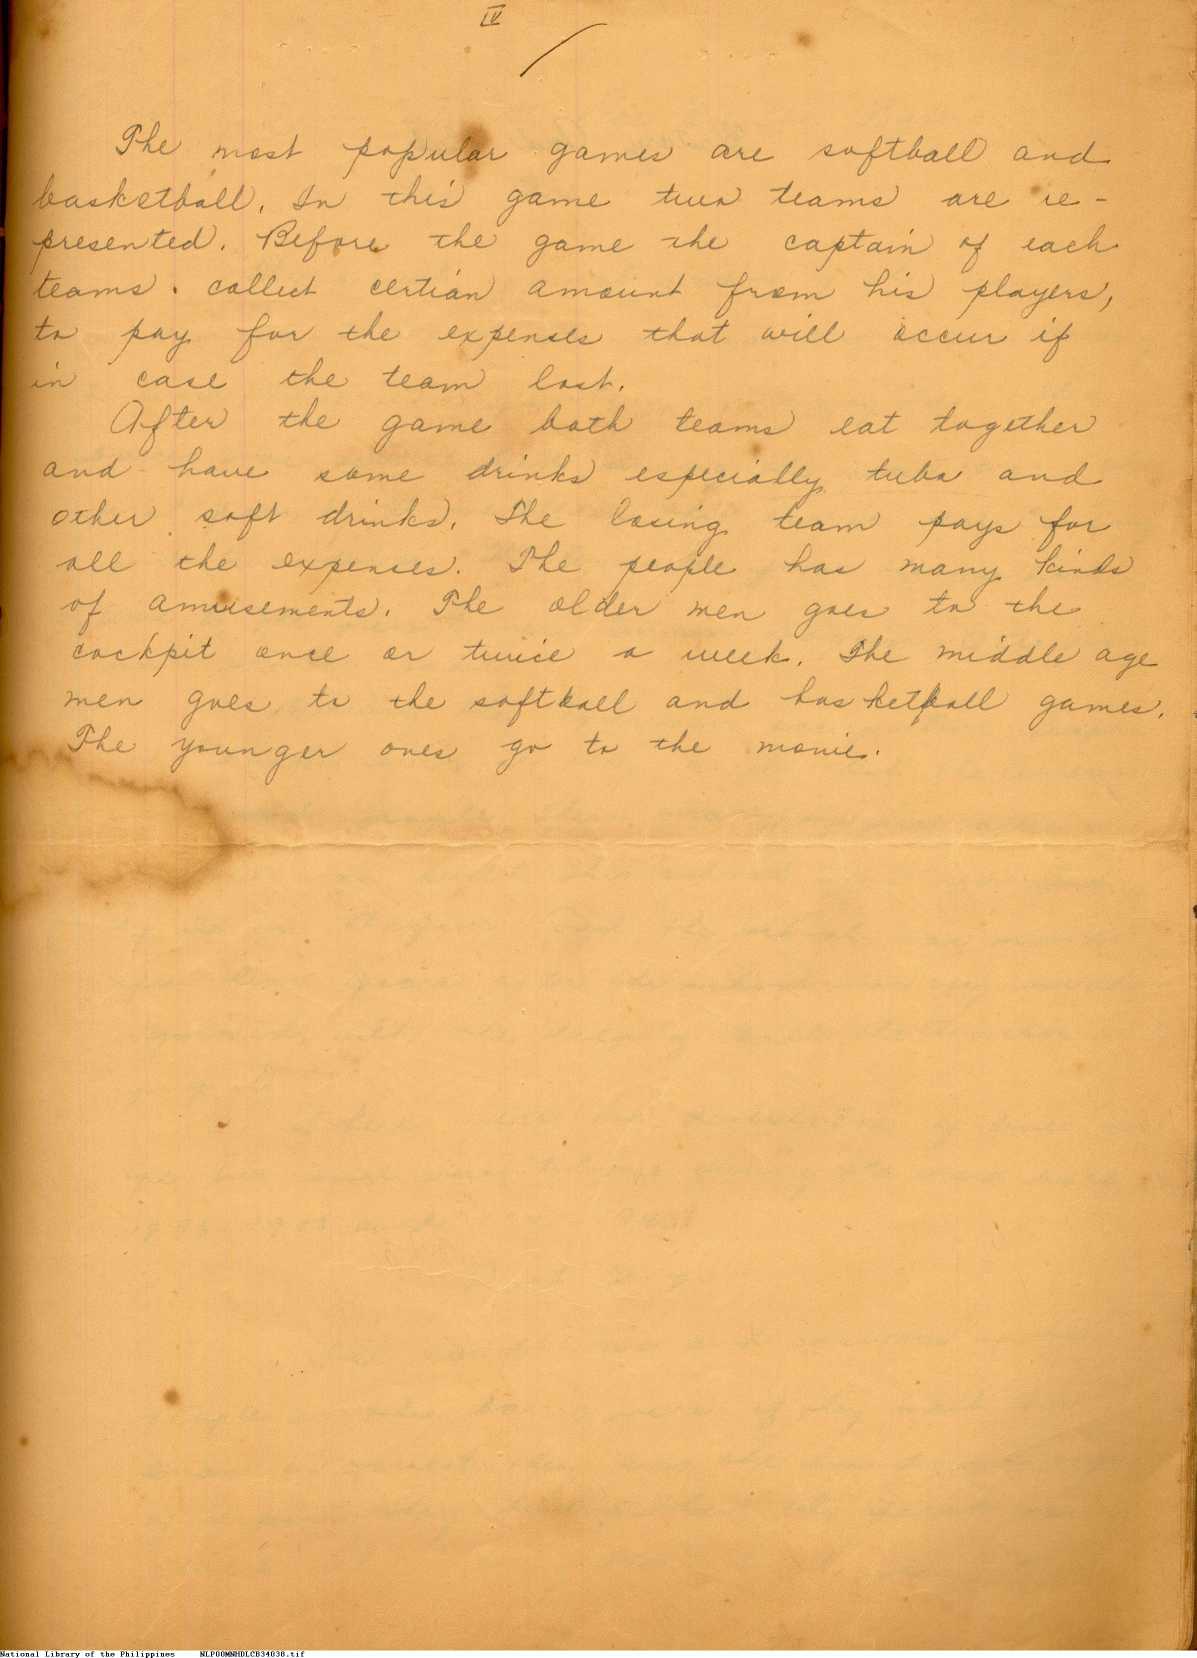 IV
The most popular games are softball and
basketball. In this game two teams are re-
presented. Before the game the captain of each
teams. collect certian amount from his players,
to pay for the expenses that will occur if
in case the team lost.
After the game both teams eat together
and have some drinks especially tuba and
other soft drinks. The losing team pays for
all the expenses. The people has many kinds
of amusements. The older men goes to the
cockpit once or twice a week. The middle age
men goes to the softball and basketball games.
The younger ones go to the movie.
National Library of the Philippines NLP00MNHDLCB34038.tif